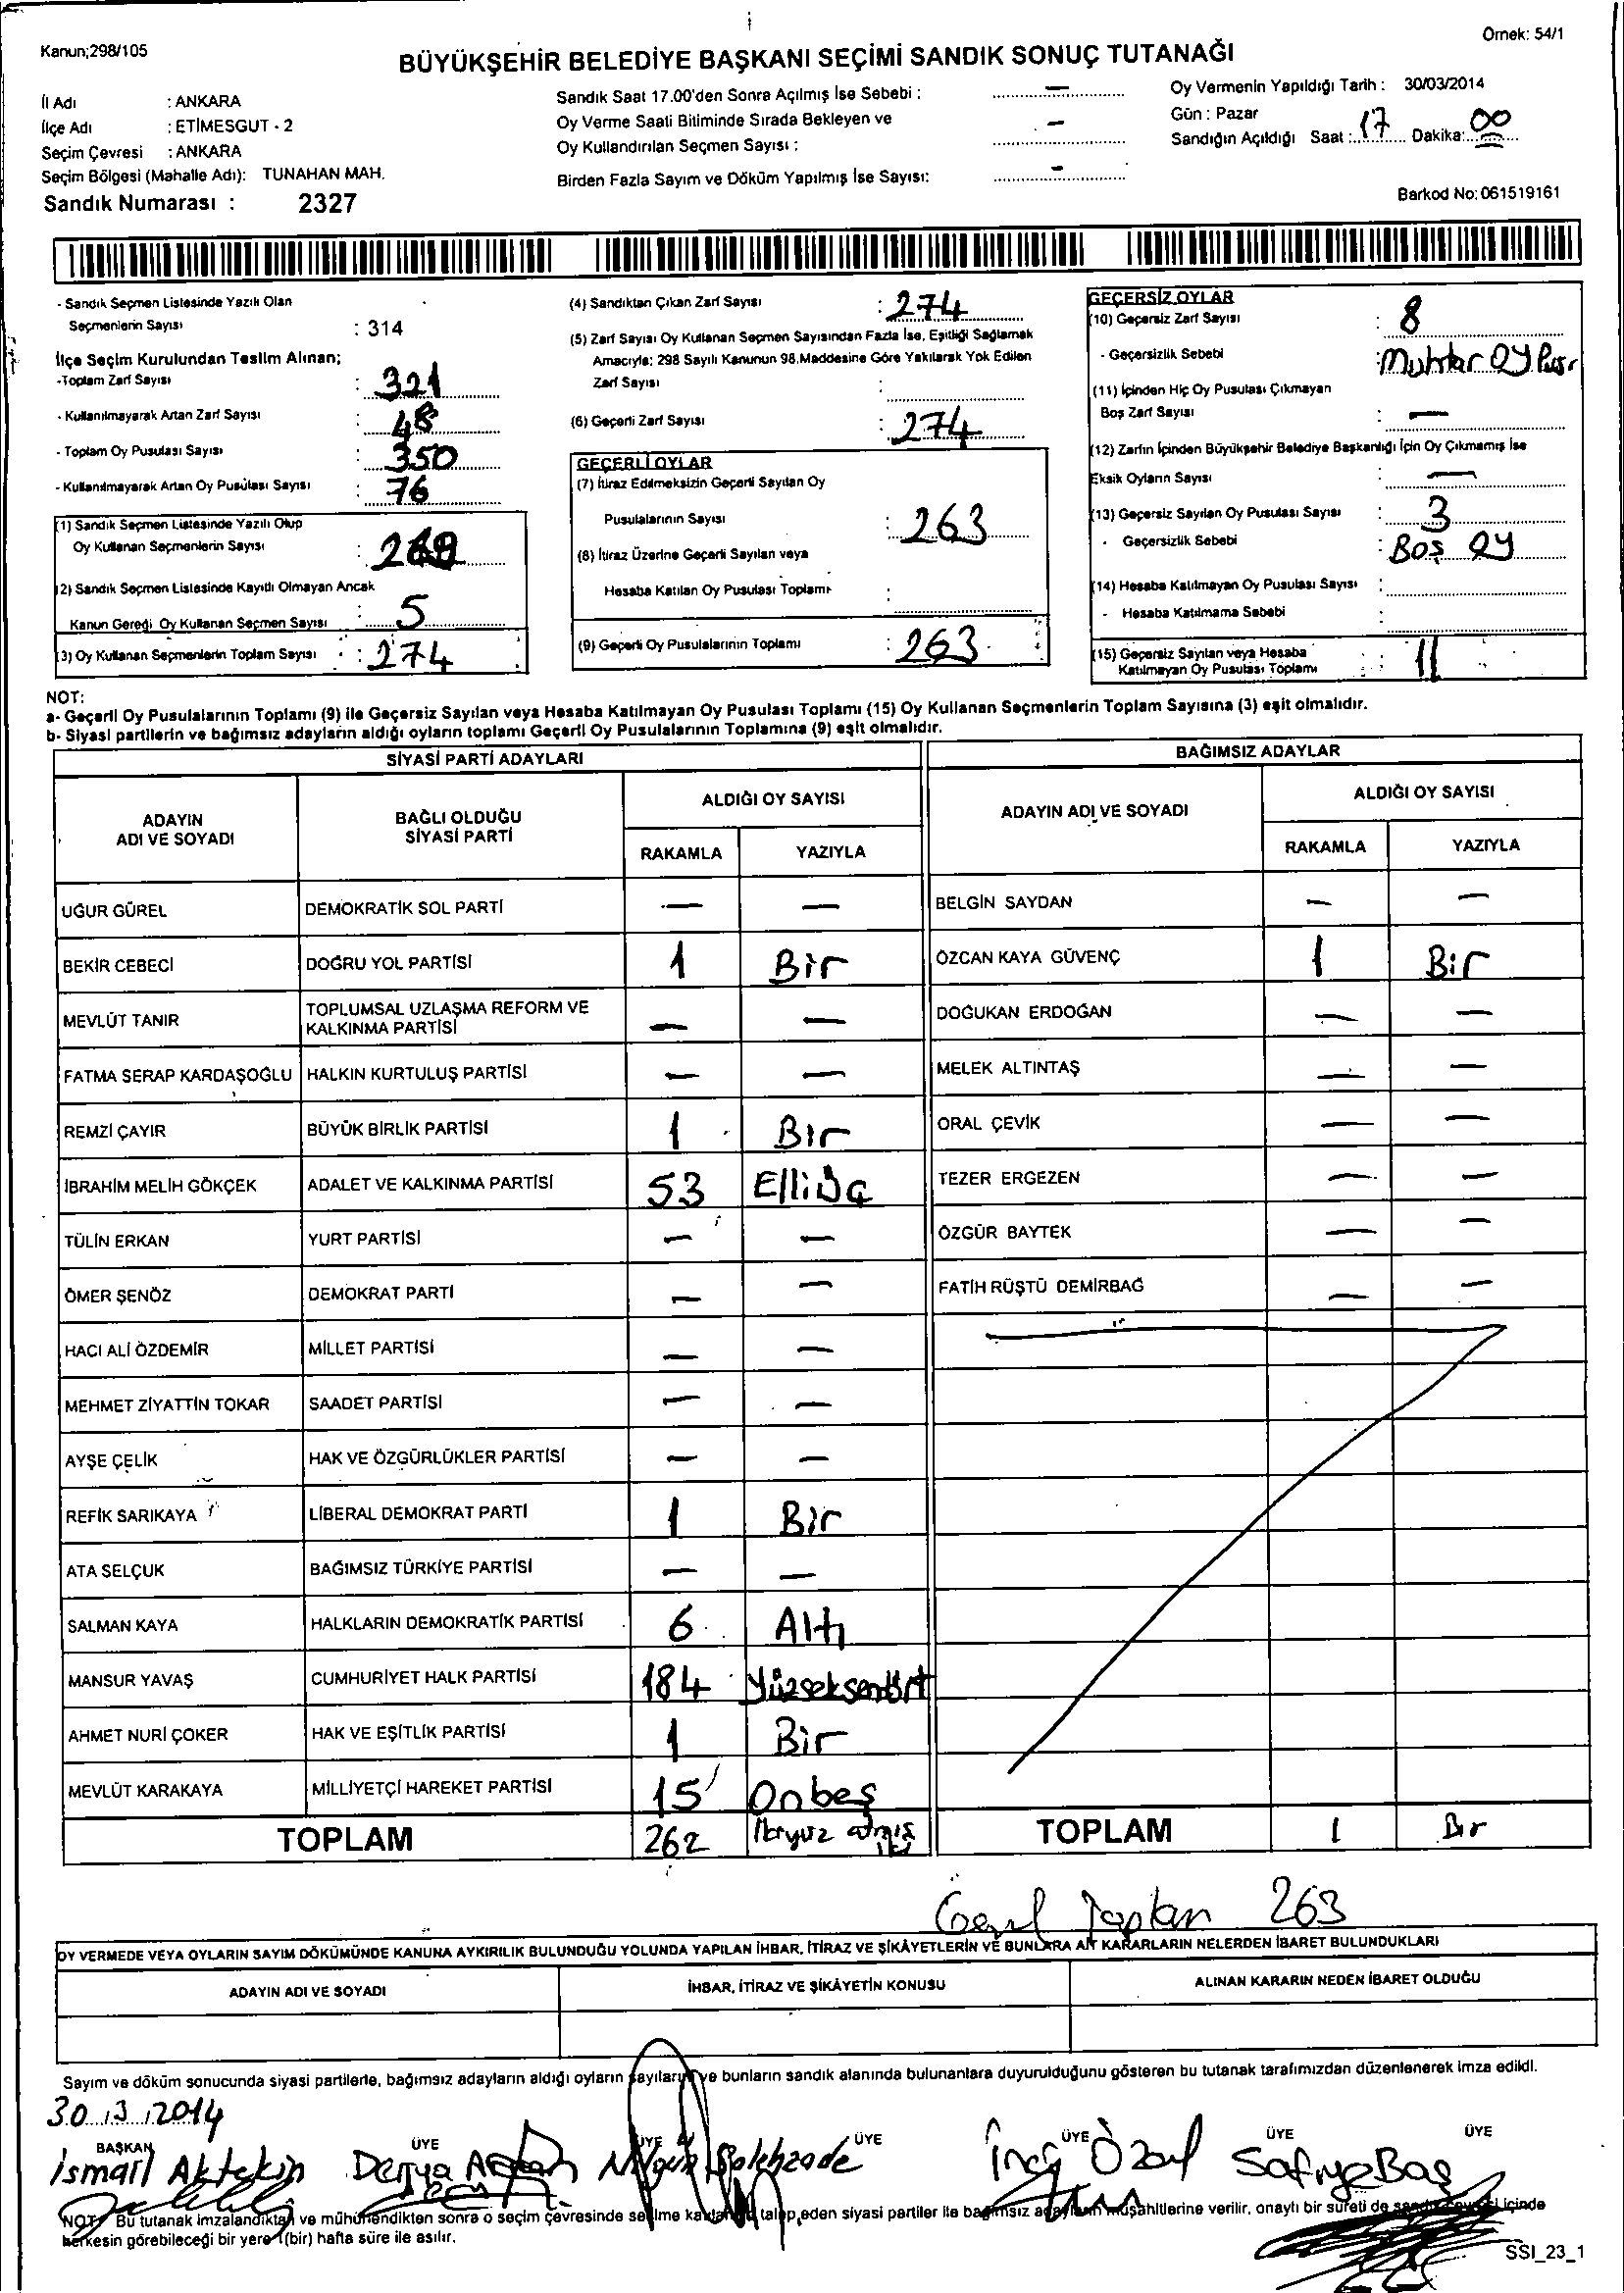 Kanun;298/105
Örnek: 54/1
BÜYÜKŞEHİR BELEDİYE BAŞKANI SEÇİMİ SANDIK SONUÇ TUTANAĞI
İl Adı : ANKARA
İlçe Adı : ETİMESGUT - 2
Seçim Çevresi : ANKARA
Seçim Bölgesi (Mahalle Adı): TUNAHAN MAH.
Sandık Numarası : 2327
Sandık Saat 17.00'den Sonra Açılmış İse Sebebi : —
Oy Verme Saati Bitiminde Sırada Bekleyen ve
Oy Kullandırılan Seçmen Sayısı : —
Birden Fazla Sayım ve Döküm Yapılmış İse Sayısı: -
Oy Vermenin Yapıldığı Tarih : 30/03/2014
Gün : Pazar
Sandığın Açıldığı Saat : 17 Dakika: 00
Barkod No: 061519161
- Sandık Seçmen Listesinde Yazılı Olan
Seçmenlerin Sayısı : 314
İlçe Seçim Kurulundan Teslim Alınan;
-Toplam Zarf Sayısı : 321
- Kullanılmayarak Artan Zarf Sayısı : 48
- Toplam Oy Pusulası Sayısı : 350
- Kullanılmayarak Artan Oy Pusulası Sayısı : 76
(1) Sandık Seçmen Listesinde Yazılı Olup
Oy Kullanan Seçmenlerin Sayısı : 269
(2) Sandık Seçmen Listesinde Kayıtlı Olmayan Ancak
Kanun Gereği Oy Kullanan Seçmen Sayısı : 5
(3) Oy Kullanan Seçmenlerin Toplam Sayısı : 274
(4) Sandıktan Çıkan Zarf Sayısı : 274
(5) Zarf Sayısı Oy Kullanan Seçmen Sayısından Fazla İse, Eşitliği Sağlamak
Amacıyla; 298 Sayılı Kanunun 98.Maddesine Göre Yakılarak Yok Edilen
Zarf Sayısı :
(6) Geçerli Zarf Sayısı : 274
GEÇERLİ OYLAR
(7) İtiraz Edilmeksizin Geçerli Sayılan Oy
Pusulalarının Sayısı : 263
(8) İtiraz Üzerine Geçerli Sayılan veya
Hesaba Katılan Oy Pusulası Toplamı :
(9) Geçerli Oy Pusulalarının Toplamı : 263
GEÇERSİZ OYLAR
(10) Geçersiz Zarf Sayısı : 8
- Geçersizlik Sebebi : Muhtar Oy Pus.
(11) İçinden Hiç Oy Pusulası Çıkmayan
Boş Zarf Sayısı : —
(12) Zarfın İçinden Büyükşehir Belediye Başkanlığı İçin Oy Çıkmamış İse
Eksik Oyların Sayısı : —
(13) Geçersiz Sayılan Oy Pusulası Sayısı : 3
- Geçersizlik Sebebi : Boş Oy
(14) Hesaba Katılmayan Oy Pusulası Sayısı :
- Hesaba Katılmama Sebebi :
(15) Geçersiz Sayılan veya Hesaba
Katılmayan Oy Pusulası Toplamı : 11
NOT:
a- Geçerli Oy Pusulalarının Toplamı (9) ile Geçersiz Sayılan veya Hesaba Katılmayan Oy Pusulası Toplamı (15) Oy Kullanan Seçmenlerin Toplam Sayısına (3) eşit olmalıdır.
b- Siyasi partilerin ve bağımsız adayların aldığı oyların toplamı Geçerli Oy Pusulalarının Toplamına (9) eşit olmalıdır.
SİYASİ PARTİ ADAYLARI
ADAYIN
ADI VE SOYADI
BAĞLI OLDUĞU
SİYASİ PARTİ
ALDIĞI OY SAYISI
RAKAMLA YAZIYLA
UĞUR GÜREL DEMOKRATİK SOL PARTİ — —
BEKİR CEBECİ DOĞRU YOL PARTİSİ 1 Bir
MEVLÜT TANIR TOPLUMSAL UZLAŞMA REFORM VE
KALKINMA PARTİSİ — —
FATMA SERAP KARDAŞOĞLU HALKIN KURTULUŞ PARTİSİ — —
REMZİ ÇAYIR BÜYÜK BİRLİK PARTİSİ 1 Bir
İBRAHİM MELİH GÖKÇEK ADALET VE KALKINMA PARTİSİ 53 Elliüç
TÜLİN ERKAN YURT PARTİSİ — —
ÖMER ŞENÖZ DEMOKRAT PARTİ — —
HACI ALİ ÖZDEMİR MİLLET PARTİSİ — —
MEHMET ZİYATTİN TOKAR SAADET PARTİSİ — —
AYŞE ÇELİK HAK VE ÖZGÜRLÜKLER PARTİSİ — —
REFİK SARIKAYA LİBERAL DEMOKRAT PARTİ 1 Bir
ATA SELÇUK BAĞIMSIZ TÜRKİYE PARTİSİ — —
SALMAN KAYA HALKLARIN DEMOKRATİK PARTİSİ 6 Altı
MANSUR YAVAŞ CUMHURİYET HALK PARTİSİ 184 Yüzseksendört
AHMET NURİ ÇOKER HAK VE EŞİTLİK PARTİSİ 1 Bir
MEVLÜT KARAKAYA MİLLİYETÇİ HAREKET PARTİSİ 15 Onbeş
TOPLAM 262 İkiyüz atmış iki
BAĞIMSIZ ADAYLAR
ADAYIN ADI VE SOYADI
ALDIĞI OY SAYISI
RAKAMLA YAZIYLA
BELGİN SAYDAN — —
ÖZCAN KAYA GÜVENÇ 1 Bir
DOĞUKAN ERDOĞAN — —
MELEK ALTINTAŞ — —
ORAL ÇEVİK — —
TEZER ERGEZEN — —
ÖZGÜR BAYTEK — —
FATİH RÜŞTÜ DEMİRBAĞ — —
TOPLAM 1 Bir
Genel Toplam 263
OY VERMEDE VEYA OYLARIN SAYIM DÖKÜMÜNDE KANUNA AYKIRILIK BULUNDUĞU YOLUNDA YAPILAN İHBAR, İTİRAZ VE ŞİKÂYETLERİN VE BUNLARA AİT KARARLARIN NELERDEN İBARET BULUNDUKLARI
ADAYIN ADI VE SOYADI İHBAR, İTİRAZ VE ŞİKÂYETİN KONUSU ALINAN KARARIN NEDEN İBARET OLDUĞU
Sayım ve döküm sonucunda siyasi partilerle, bağımsız adayların aldığı oyların sayılarını ve bunların sandık alanında bulunanlara duyurulduğunu gösteren bu tutanak tarafımızdan düzenlenerek imza edildi.
30/3/2014
BAŞKAN ÜYE ÜYE ÜYE ÜYE ÜYE ÜYE
İsmail Aktekin Derya Nilgün İnci Özal Safiye Baş
NOT: Bu tutanak imzalandıktan ve mühürlendikten sonra o seçim çevresinde seçilme talep eden siyasi partiler ile bağımsız adayların müşahitlerine verilir, onaylı bir sureti de sandık çevresi içinde
herkesin görebileceği bir yere 1(bir) hafta süre ile asılır.
SSI_23_1